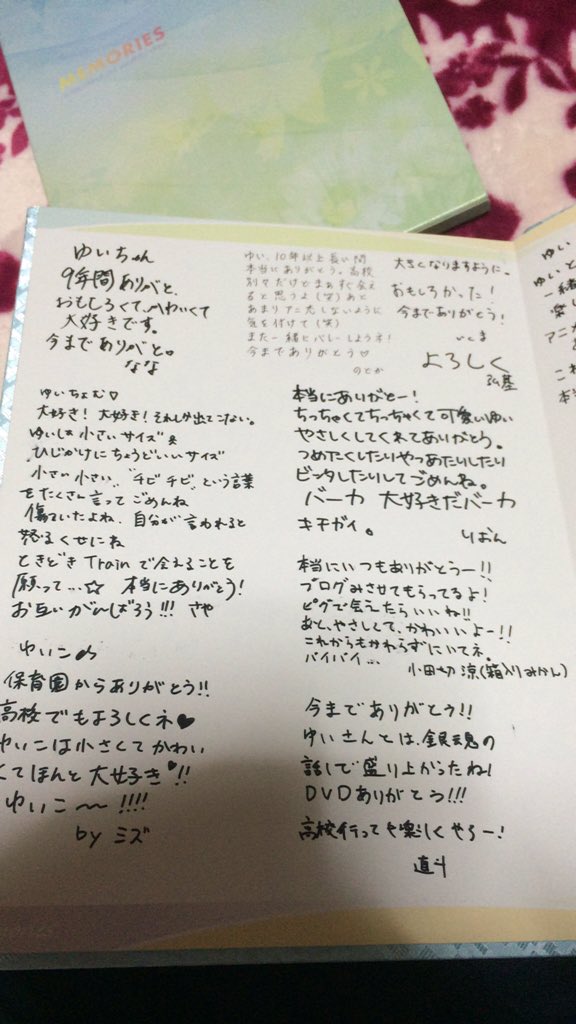 MEMORIES
ゆいちゃん
9年間ありがと、
おもしろくて、かわいくて
大好きです。
今までありがと。
なな
ゆい、10年以上長い間
本当にありがとう。高校
別々だけどまぁすぐ会え
ると思うよ(笑)あと
あまりアニ充しないように
気を付けて(笑)
また一緒ヒバレーしようネ!
今までありがとう♡
のどか
大きくなりますように。
おもしろかった!
今までありがとう!
よろしく
ゆいちょむ♡
大好き!大好き!それしか出てこない。
ゆいしは小さいサイズ
ひじかけにちょうどいいサイズ
小さい小さい、"チビチビ"という言葉
をたくさん言ってごめんね
傷ついたよね、自分が言われると
怒るくせにね
ときどきTrainで会えることを
願って...☆ 本当にありがとう!
お互いがんばろう!!! さや
本当にありがとー!
ちっちゃくてちっちゃくて可愛いゆい
やさしくしてくれてありがとう。
つめたくしたりやつあたりしたり
ビンタしたりしてごめんね。
バーカ 大好きだバーカ
キチガイ。
りおん
本当にいつもありがとうー!!
ブログみさせてもらってるよ!
ピグで会えたらいいね!!
あと、やさしくて、かわいいよー!!
これからもかわらずにいてネ。
バイバイ...
小田切 涼(箱入りみかん)
ゆいこ
保育園からありがとう!!
高校でもよろしくネ♥
ゆいこは小さくてかわい
くてほんと大好き♥!!
ゆいこ〜!!!!
by ミズ
今までありがとう!!
ゆいさんとは、銀魂の
話しで盛り上がったね!
DVDありがとう!!!
高校行っても楽しくやろー!
直斗
ゆい
ゆいと
一緒
アニカ
これ
本当